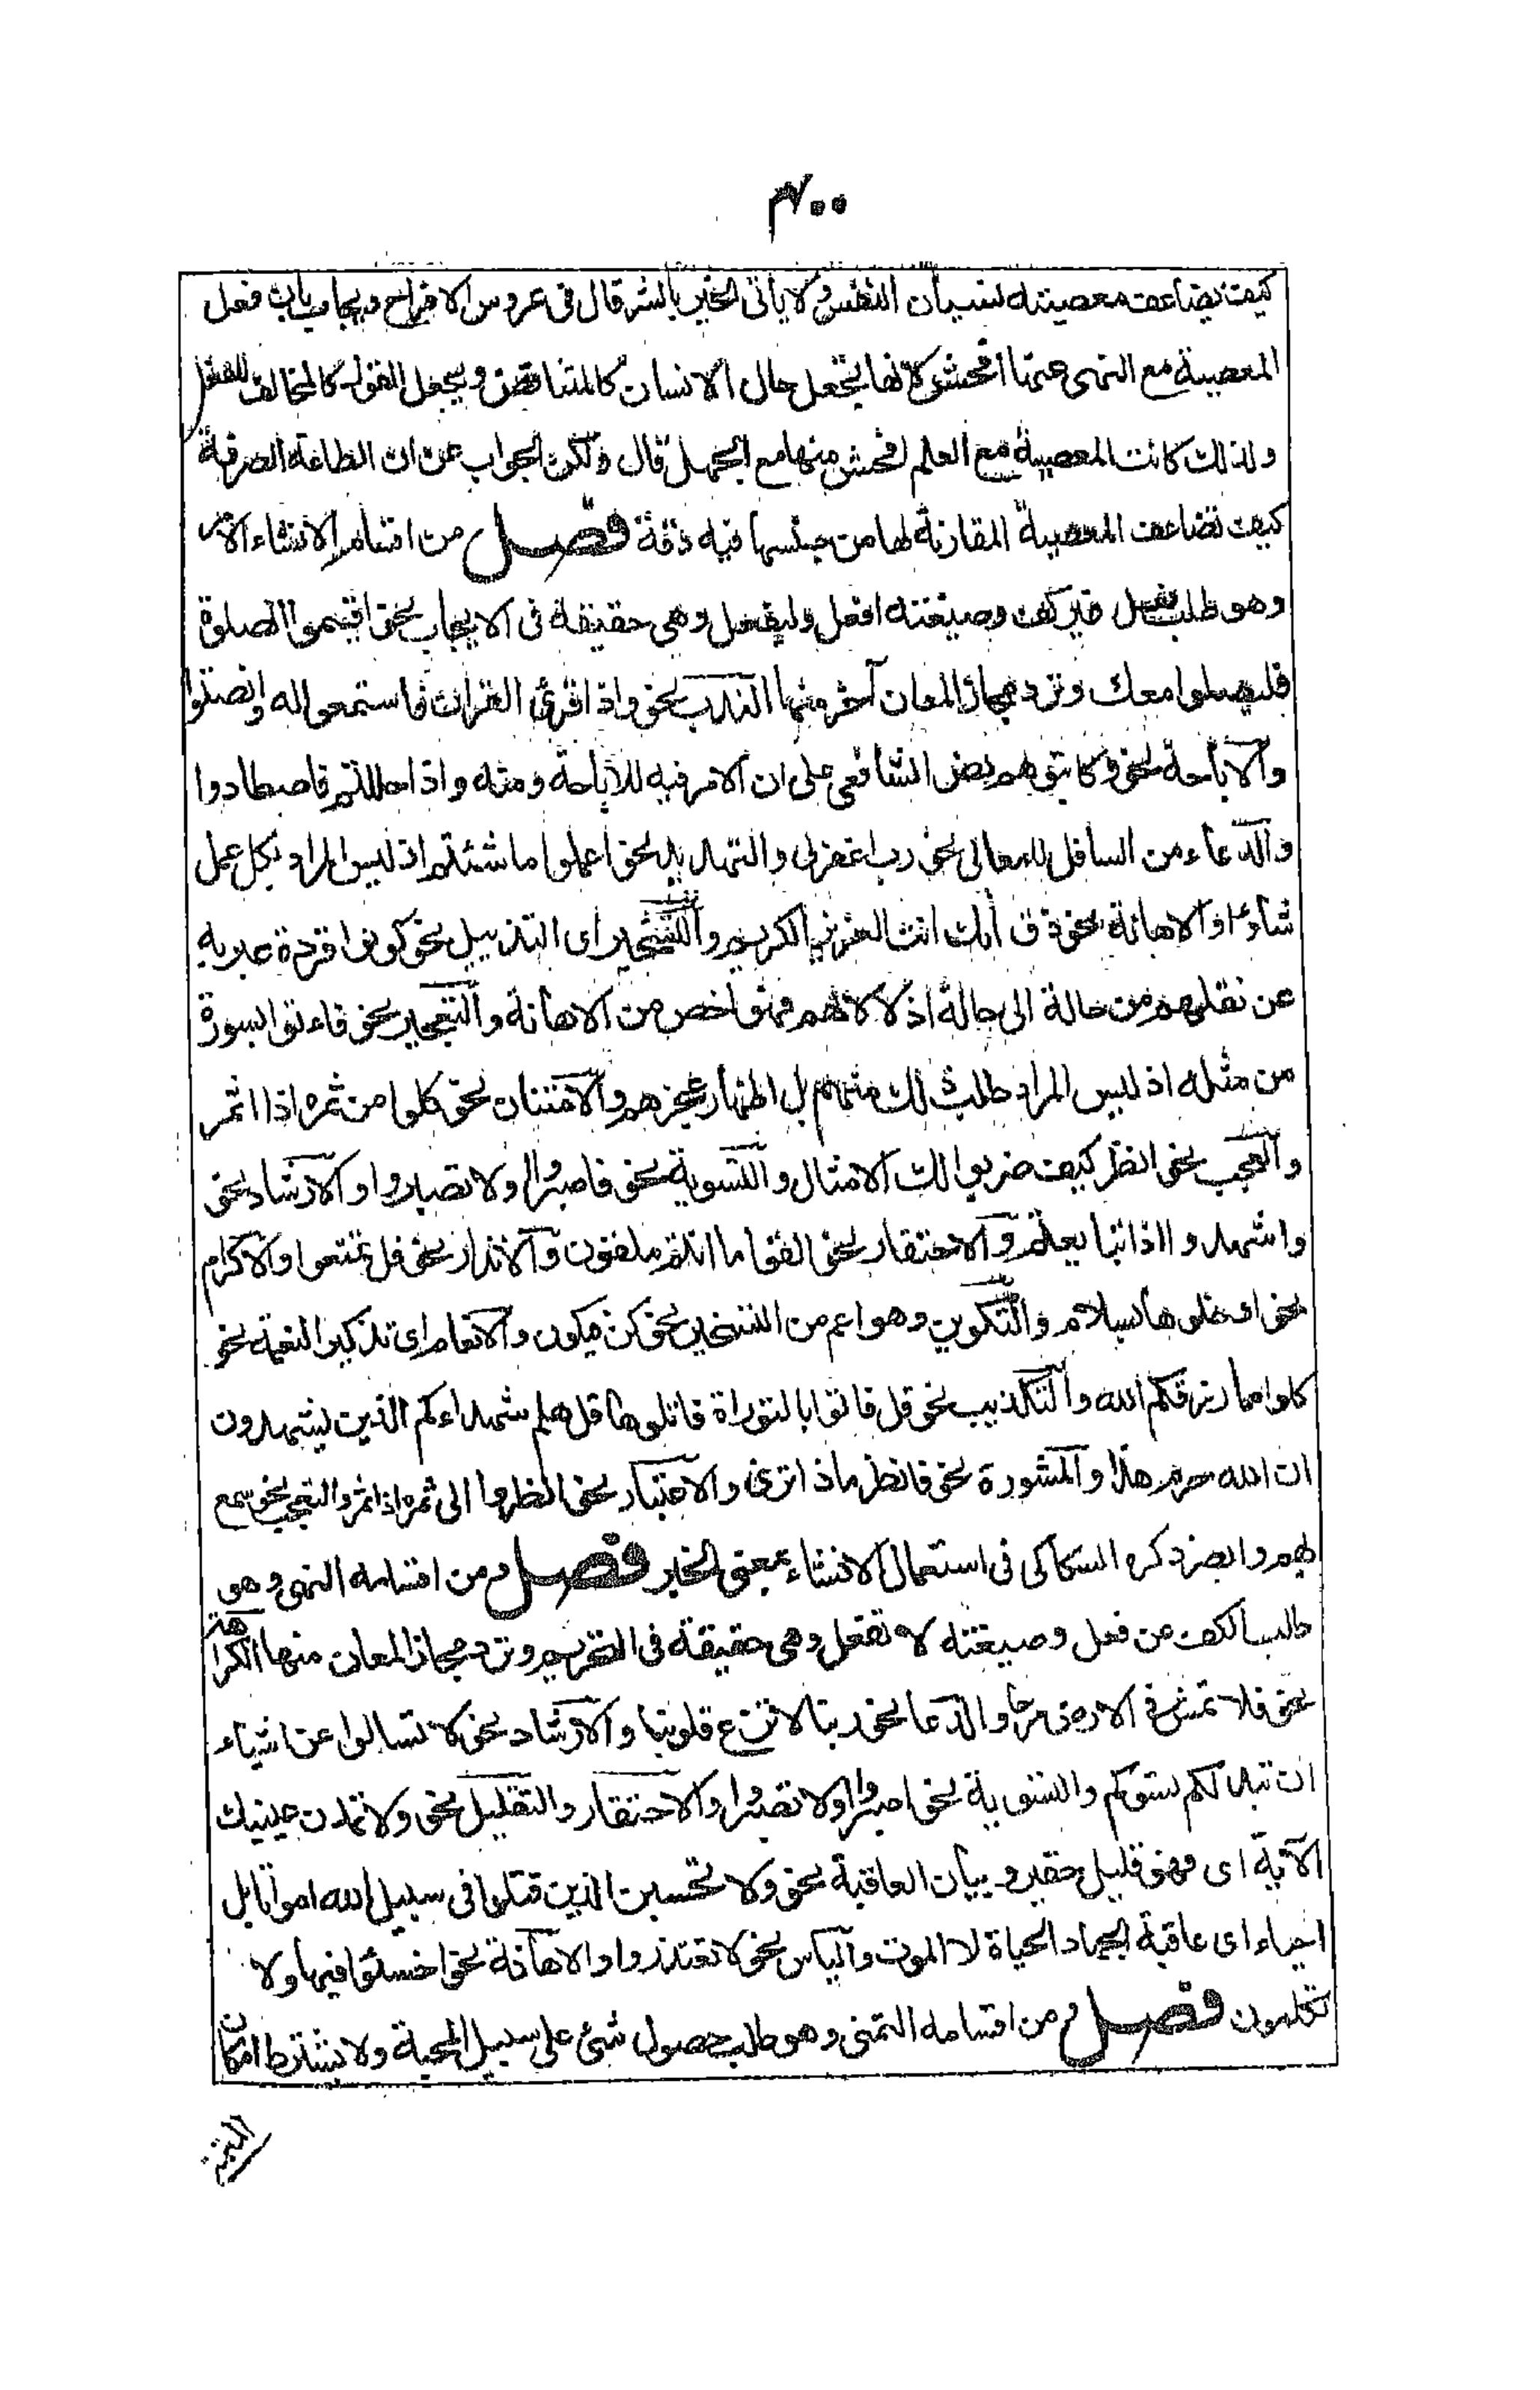 ٧٠٠م
كيف تضاعف معصيته لنسيان النفس ولا يأتى الخير بالشر قال فى عروس الافراح ويجاب بان فعل
المعصية مع النهى عنها افحش لانها تجعل حال الانسان كالمتناقض ويجعل القول كالمخالف للفعل
ولذلك كانت المعصية مع العلم افحش منها مع الجهل قال ولكن الجواب عن ان الطاعة الصرفة
كيف تضاعف المعصية المقارنة لها من جنسها فيه دقة فصل من اقسام الانشاء الامر
وهو طلب فعل غير كف وصيغته افعل وليفعل وهى حقيقة فى الايجاب نحو اقيموا الصلوة
فليصلوا معك وترد مجازا لمعان آخر منها الندب نحو واذا قرئ القرآن فاستمعوا له وانصتوا
والاباحة نحو فكاتبوهم نص الشافعى على ان الامر فيه للاباحة ومنه واذا حللتم فاصطادوا
والدعاء من السافل للعالى نحو رب اغفر لى والتهديد نحو اعملوا ما شئتم اذ ليس المراد بكل عمل
شاؤا والاهانة نحو ذق انك انت العزيز الكريم والتسخير اى التذليل نحو كونوا قردة عبر به
عن نقلهم من حالة الى حالة اذلالا لهم فهو اخص من الاهانة والتعجيز نحو فاتوا بسورة
من مثله اذ ليس المراد طلب ذلك منهم بل اظهار عجزهم والامتنان نحو كلوا من ثمره اذا اثمر
والعجب نحو انظر كيف ضربوا لك الامثال والتسوية نحو فاصبروا او لا تصبروا والارشاد نحو
واشهدوا اذا تبايعتم والاحتقار نحو القوا ما انتم ملقون والانذار نحو قل تمتعوا والاكرام
نحو ادخلوها بسلام والتكوين وهو اعم من التسخير نحو كن فيكون والانعام اى تذكير النعمة نحو
كلوا مما رزقكم الله والتكذيب نحو قل فاتوا بالتوراة فاتلوها قل هلم شهداءكم الذين يشهدون
ان الله حرم هذا والمشورة نحو فانظر ماذا ترى والاعتبار نحو انظروا الى ثمره اذا اثمر والتعجب نحو اسمع
بهم وابصر ذكره السكاكى فى استعمال الانشاء بمعنى الخبر فصل ومن اقسامه النهى وهو
طلب الكف عن فعل وصيغته لا تفعل وهى حقيقة فى التحريم وترد مجازا لمعان منها الكراهة
نحو فلا تمش فى الارض مرحا والدعا نحو ربنا لا تزغ قلوبنا والارشاد نحو لا تسالوا عن اشياء
ان تبد لكم تسؤكم والتسوية نحو اصبروا او لا تصبروا والاحتقار والتقليل نحو ولا تمدن عينيك
الآية اى فهو قليل حقير وبيان العاقبة نحو ولا تحسبن الذين قتلوا فى سبيل الله امواتا بل
احياء اى عاقبة الجهاد الحياة لا الموت والياس نحو لا تعتذروا والاهانة نحو اخسئوا فيها ولا
تكلمون فصل ومن اقسامه التمنى وهو طلب حصول شئ على سبيل المحبة ولا يشترط امكان